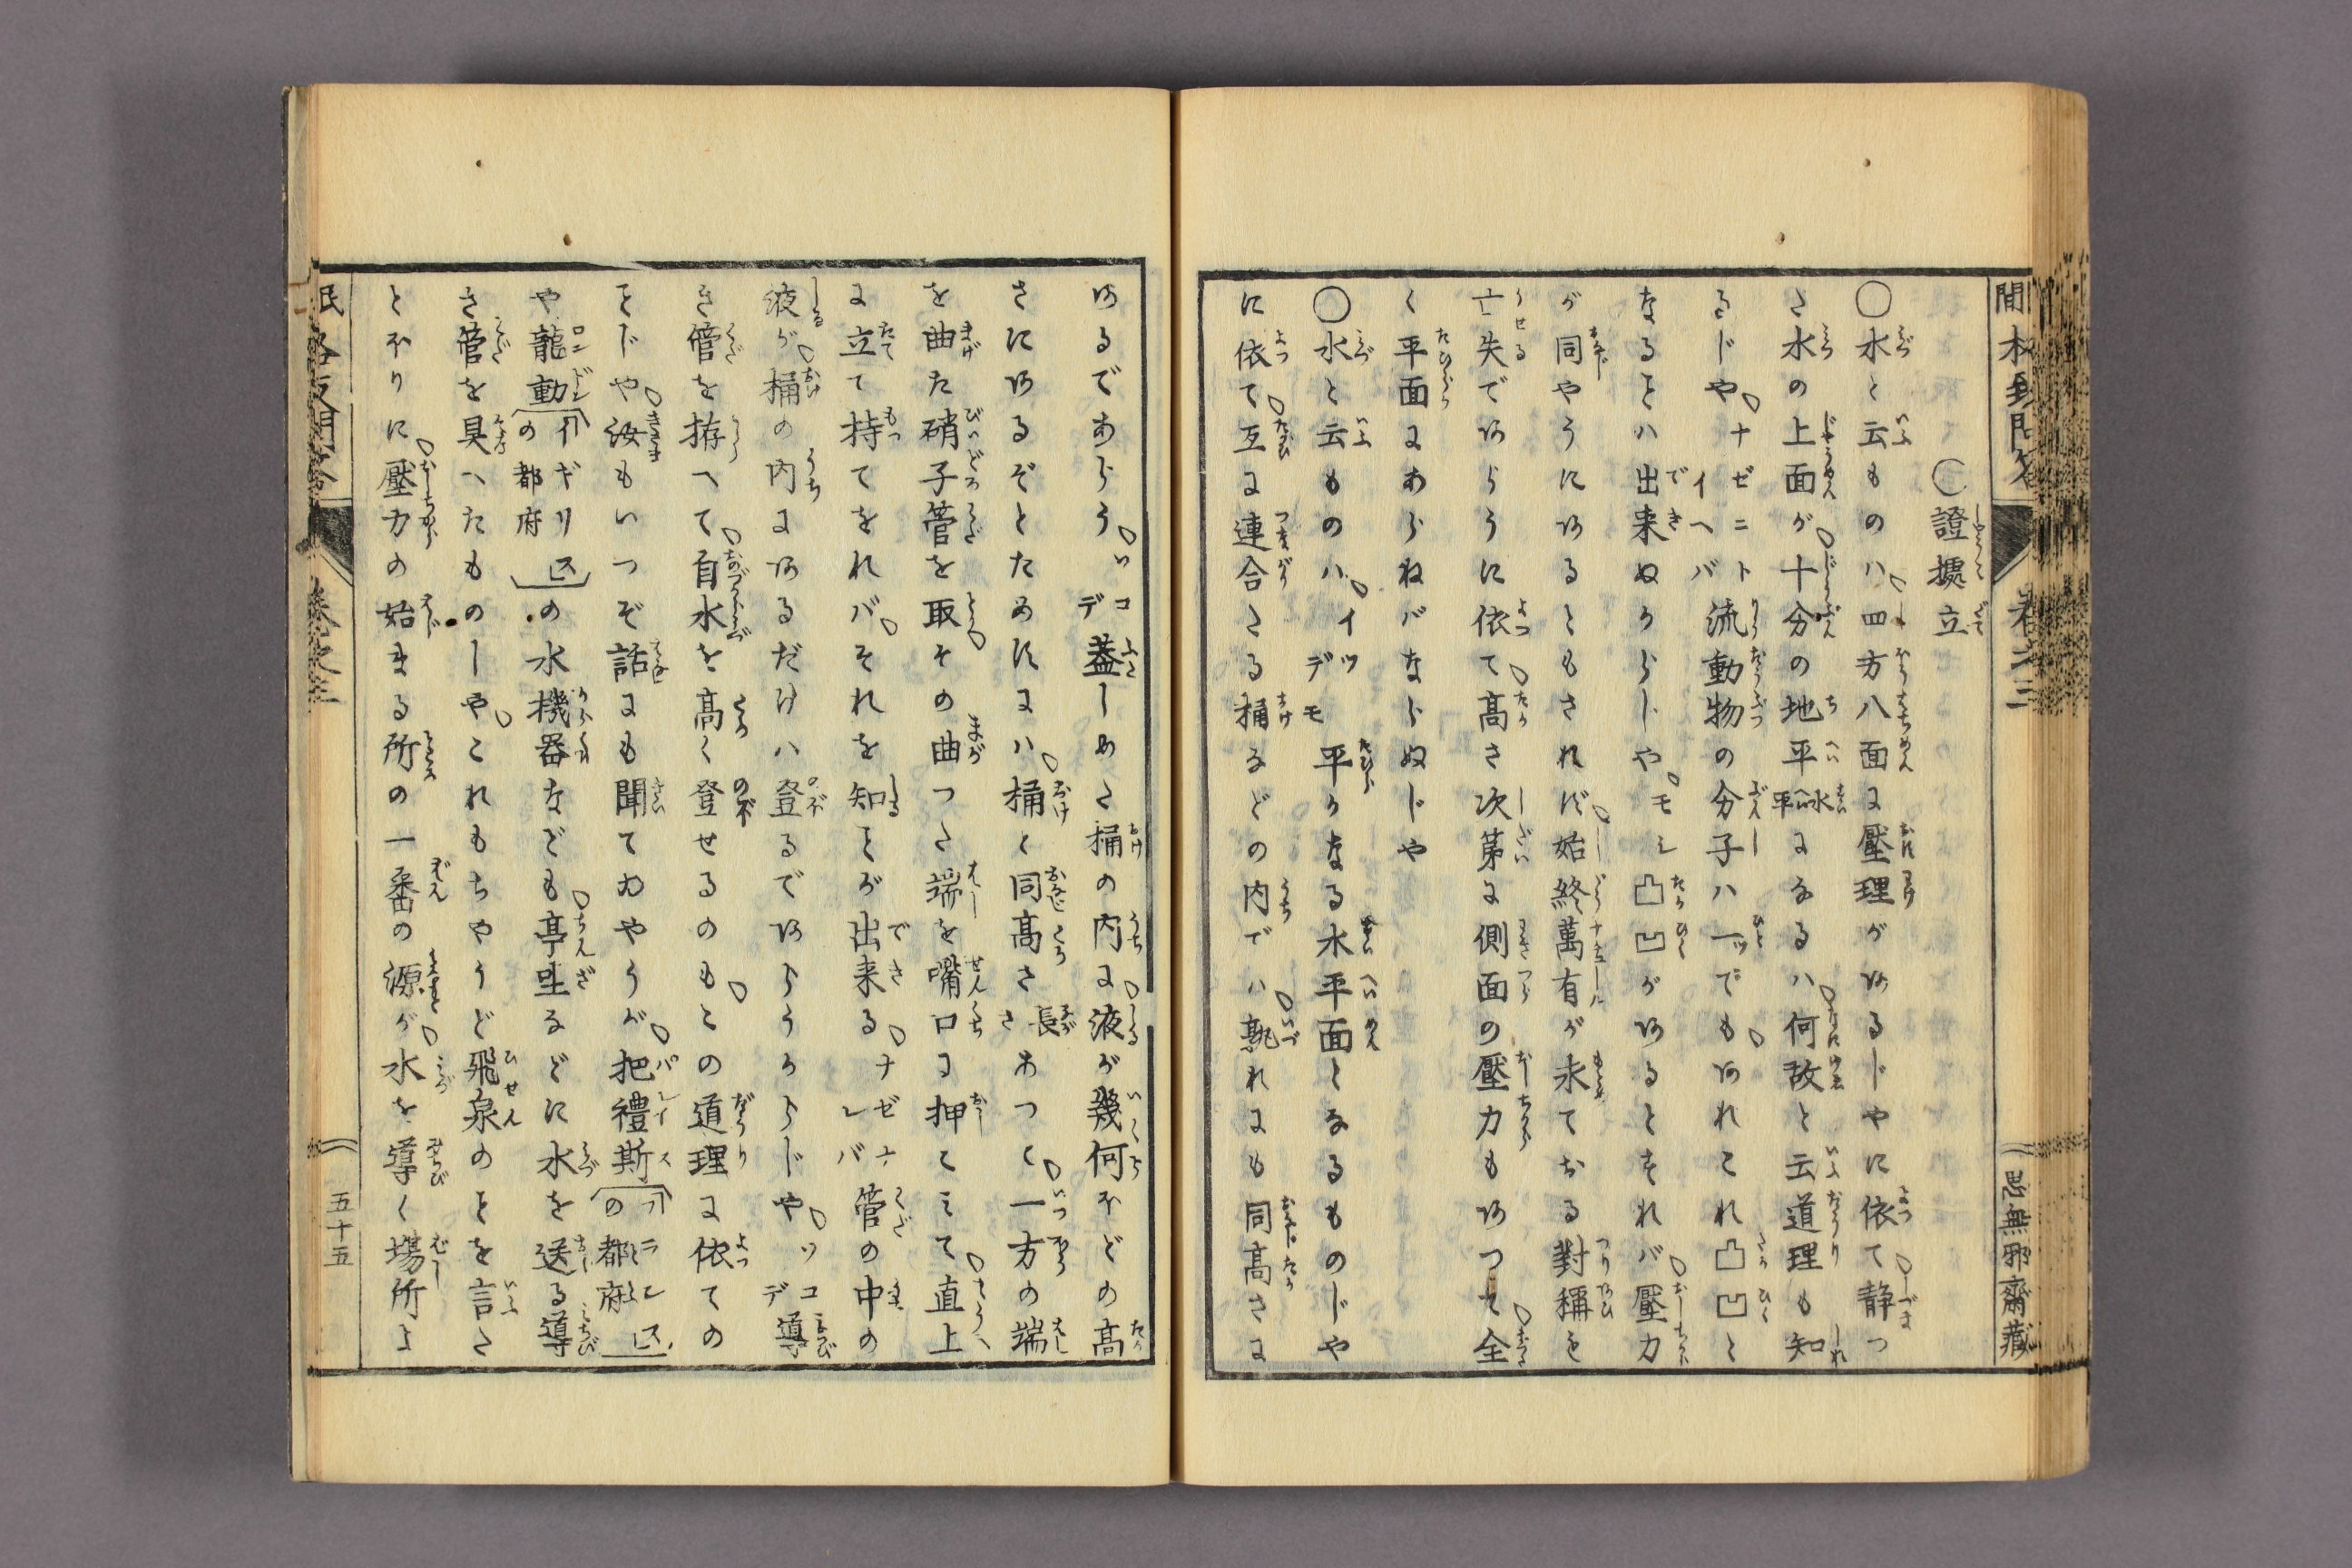 ○證據立
○水と云ものハ四方八面に壓理があるじやに依て静つ
た水の上面が十分の地平水平になるハ何故と云道理も知
るじやナゼニトイヘバ流動物の分子ハ一ッでもあれこれ凸凹と
なることハ出来ぬからじやモシ凸凹があるとすれバ壓力
が同やうにあるともされず始終萬有が求ておる對稱を
亡失であらうに依て高さ次第に側面の壓力もあつて全
く平面にあらねバならぬじや
○水と云ものハイツデモ平かなる水平面となるものじや
に依て互に連合たる桶などの内でハ孰れにも同高さに
あるであらうコデ蓋しめた桶の内に液が幾何ほどの高
さにあるぞとためすにハ桶と同高さ長さあつて一方の端
を曲た硝子管を取その曲つた端を嘴口に押こみて直上
に立て持てをれバそれを知ことが出来るナゼナレバ管の中の
液が桶の内にあるだけハ登るであらうからじやソコデ導
き管を拵へて自水を高く登せるのもこの道理に依ての
ことじや汝もいつぞ話にも聞てわやうが把禮斯フランスの都府
や龍動イギリスの都府の水機器なども亭坐などに水を送る導
き管を具へたものじやこれもちやうど飛泉のことを言た
とほりに壓力の始まる所の一番の源が水を導く場所よ
巻之三
思無邪齋藏
五十五